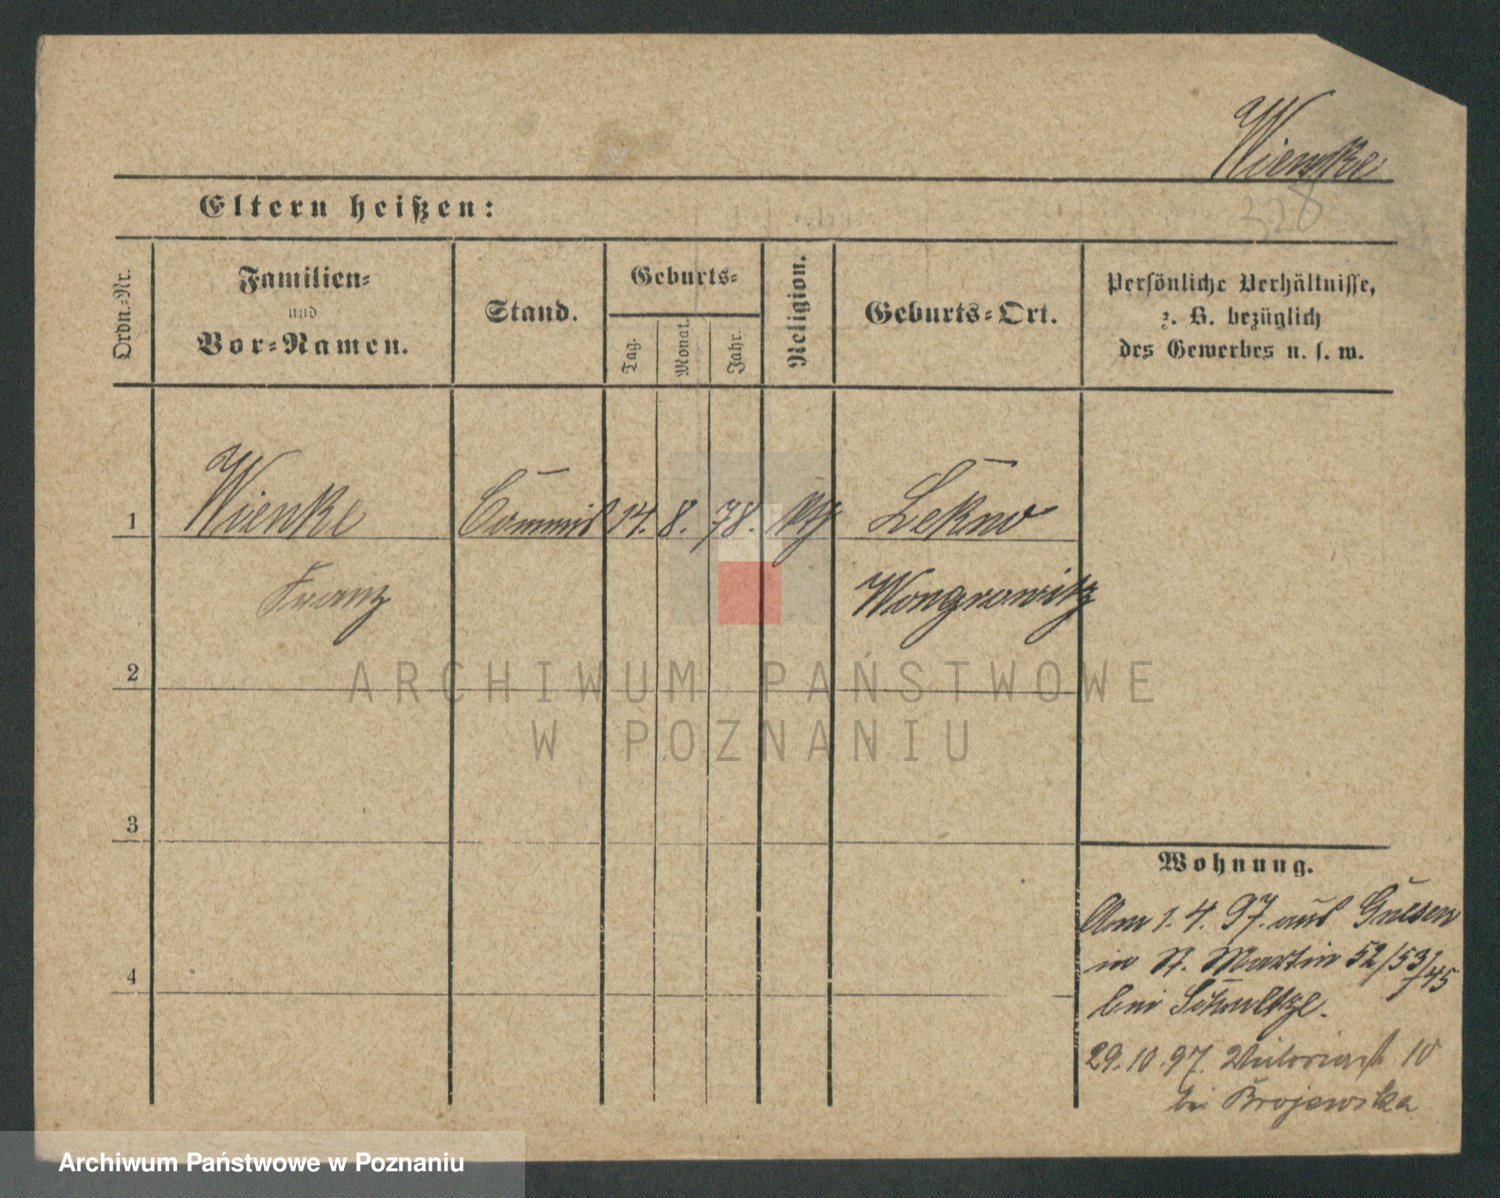 Wienke
328
Eltern heißen:
Ordn.-Nr.
Familien-
und
Vor-Namen.
Stand.
Geburts-
Tag.
Monat.
Jahr.
Religion.
Geburts-Ort.
Persönliche Verhältnisse,
z. B. bezüglich
des Gewerbes u. s. w.
1
Wienke
Commis
14.
8.
78.
Lekno
Franz
Wongrowitz
2
3
4
Wohnung.
Am 1.4.97. aus Gnesen
in St. Martin 52/53/45
bei Schultze.
29.10.97. Victoriast 10
bei Brojewska
ARCHIWUM PAŃSTWOWE
W POZNANIU
Archiwum Państwowe w Poznaniu